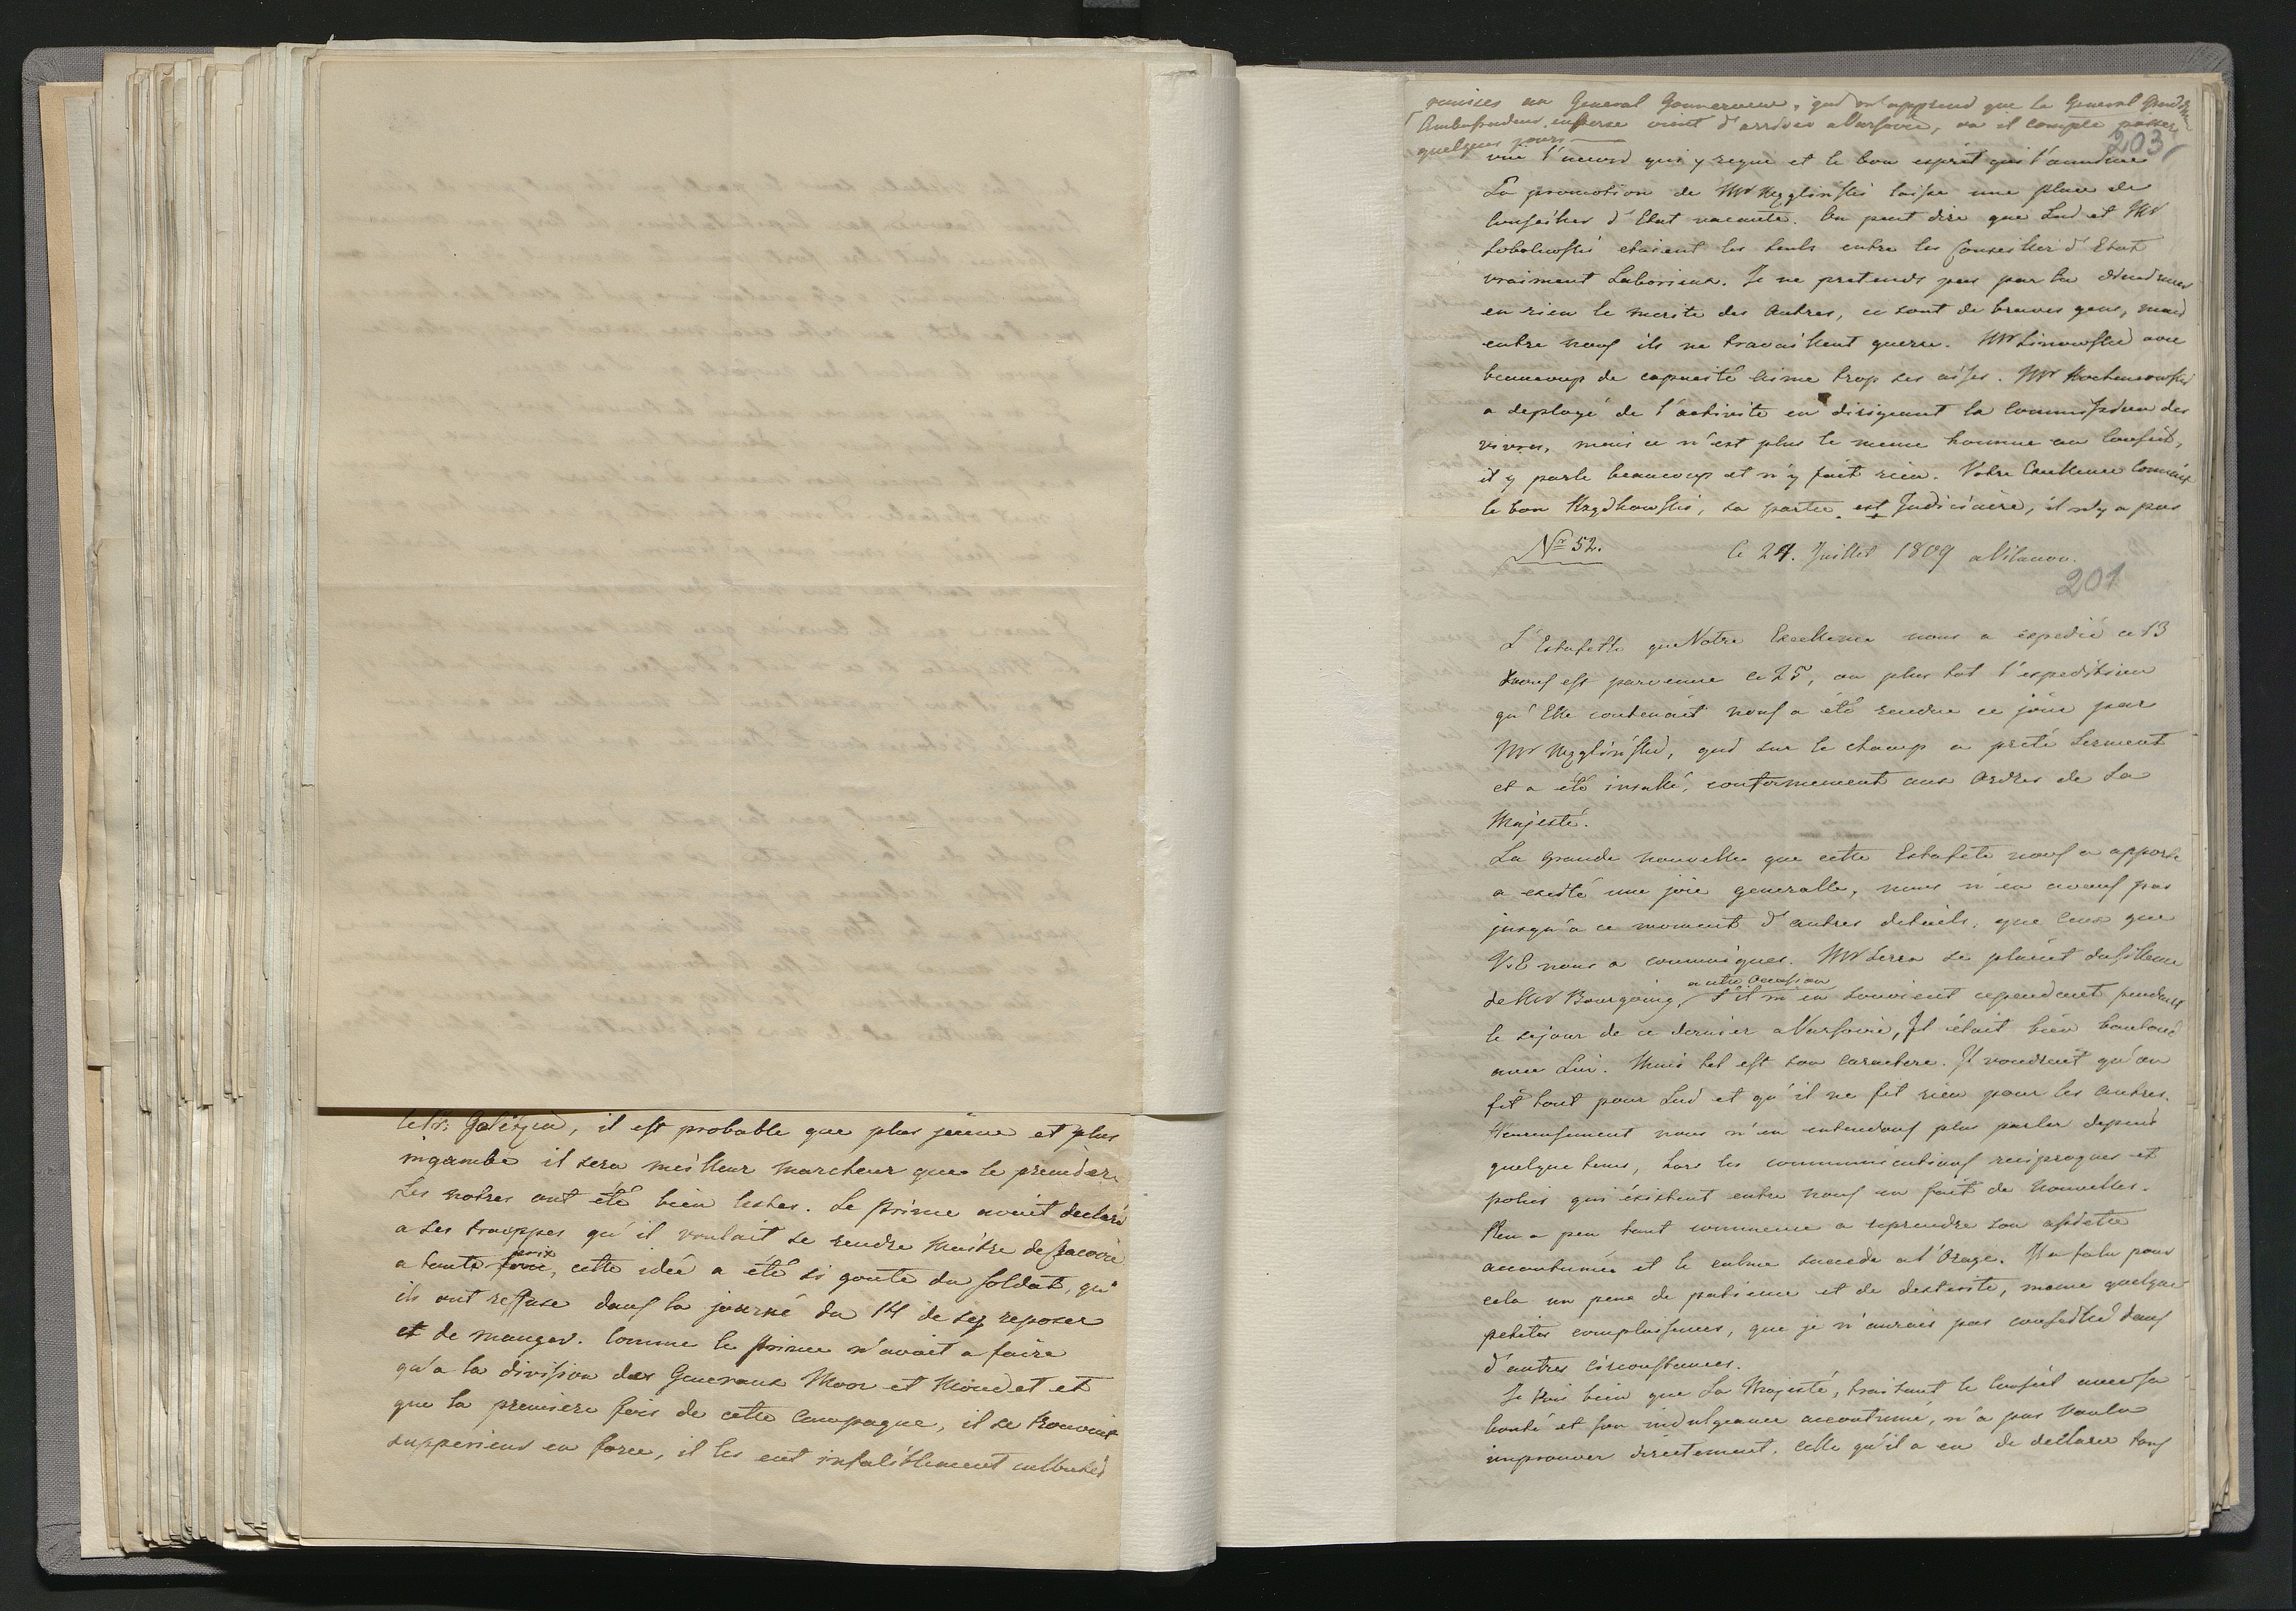 le Pr: Galitzin, il est probable que plus jeune et plus
ingambe il sera meilleur marcheur que le premier
Les notres ont été bien lestes. Le Prince avait declaré
a ses trouppes qu'il voulait se rendre Maitre de Cracovie
prix
a toute force, cette idée a été si gouté du Soldat, qu'
ils ont reffusé dans la journé du 14 de se reposer
et de manger. Comme le Prince n'avait a faire
qu'a la division des Generaux Moor et Mondet et
que la premiere fois de cette Campagne, il se trouvait
supperieur en force, il les eut infaliblement culbutés
remises au General Gouverneur, qui apprend que le General
Ambassadeur en Perse vient d'arriver a Varsovie, ou il compte passer
quelques jours
203
vue l'accord qui y regne et le bon esprit qui l'anime
La promotion de Mr Węgliński laisse une place de
Conseiller d'Etat vacante. On peut dire que Lui et Mr
Sobolewski etaient les seuls entre les Conseiller d'Etat
vraiment Laborieux. Je ne pretends pas par la diminuer
en rien le merite des Autres, ce sont de braves gens, mais
entre nous ils ne travaillent guerre. Mr Linowski avec
beaucoup de capacité aime trop ses aises. Mr Kochanowski
a deployé de l'activite en dirigeant la Commission des
vivres, mais ce n'est plus le meme homme au Conseil,
il y parle beaucoup et n'y fait rien. Votre Excellence connait
le bon, sa partie est Judiciaire, il n'y a pas
Nr 52. le 29. Juillet 1809 a Vilanov.
201
L'Estafette que Votre Excellence nous a expedié ce 13
nous est parvenue ce 25, ou plus tot l'expedition
qu'Elle contenait nous a été rendue ce jour par
Mr Węgliński, qui sur le champ a preté Serment
et a été installé, conformement aux Ordres de Sa
Majesté.
La grande nouvelle que cette Estafete nous a apporté
a excité une joie generalle, nous n'en avons pas
jusqu'a ce moment d'autres details, que ceux que
V.E nous a communiqués. Mr Serra se plaint du silence
de Mr Bourgoing, s'il m'en souvient cependant pendant
le sejour de ce dernier a Varsovie, Il était bien
avec Lui. Mais tel est son caractere. Il voudrait qu'on
fit tout pour Lui et qu'il ne fit rien pour les autres.
Heureusement nous n'en entendons plus parler depuis
quelque tems, hors les communications reciproques et
polies qui existent entre nous en fait de Nouvelles.
Peu a peu tout commence a reprendre son assiette
accoutumée et le calme succede a l'Orage. Il a falu pour
cela un peux de patience et de dexterité, meme quelques
petites complaisances, que je n'aurais pas conseillé dans
d'autres Circonstances.
Je vois bien que Sa Majesté, traitant le Conseil avec sa
bonté et son indulgeance accoutumé, n'a pas voulu
improuver directement. Celle qu'il a eu de declarer tous